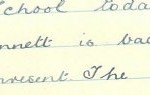 School toda
nnett is ba
resent The